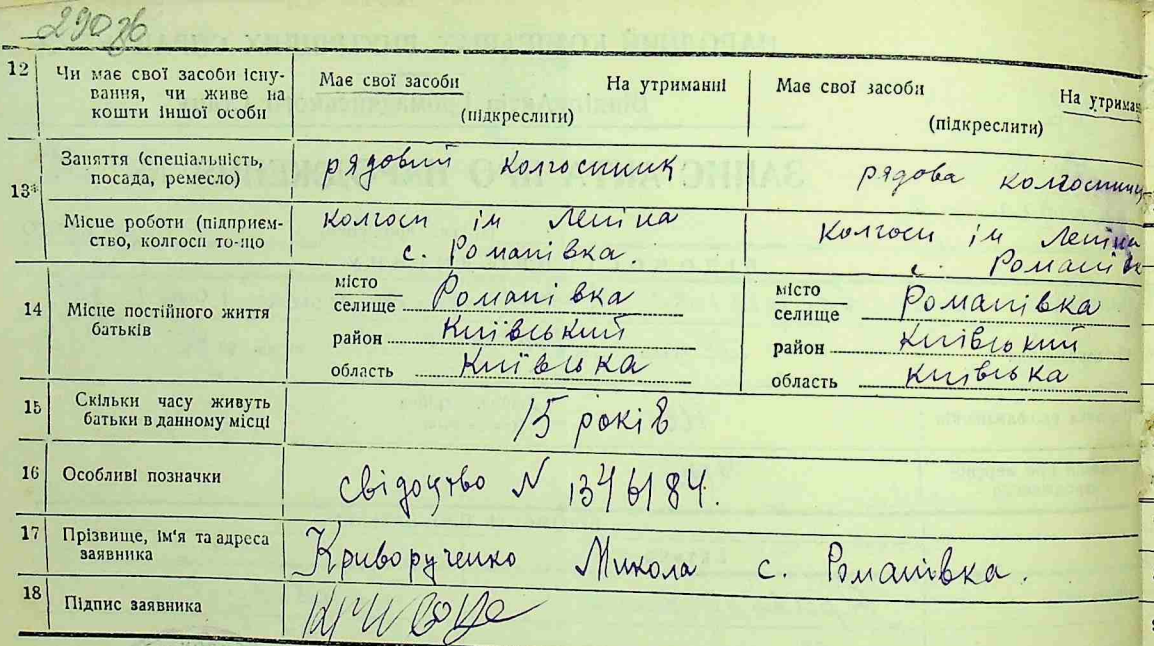 290 зв
12 Чи має свої засоби існу-
вання, чи живе на
кошти іншої особи
Має свої засоби На утриманні
(підкреслити)
Має свої засоби На утриман
(підкреслити)
13* Заняття (спеціальність,
посада, ремесло)
рядовий колгоспник
рядова колгоспниц
Місце роботи (підприєм-
ство, колгосп то-що
колгосп ім Леніна
с. Романівка
Колгосп ім Леніна
с. Романівк
14 Місце постійного життя
батьків
місто
селище Романівка
район Київський
область Київська
місто
селище Романівка
район Київський
область Київська
15 Скільки часу живуть
батьки в данному місці
15 років
16 Особливі позначки
Свідоцтво N 1346184.
17 Прізвище, ім'я та адреса
заявника
Криворученко Микола с. Романівка.
18 Підпис заявника